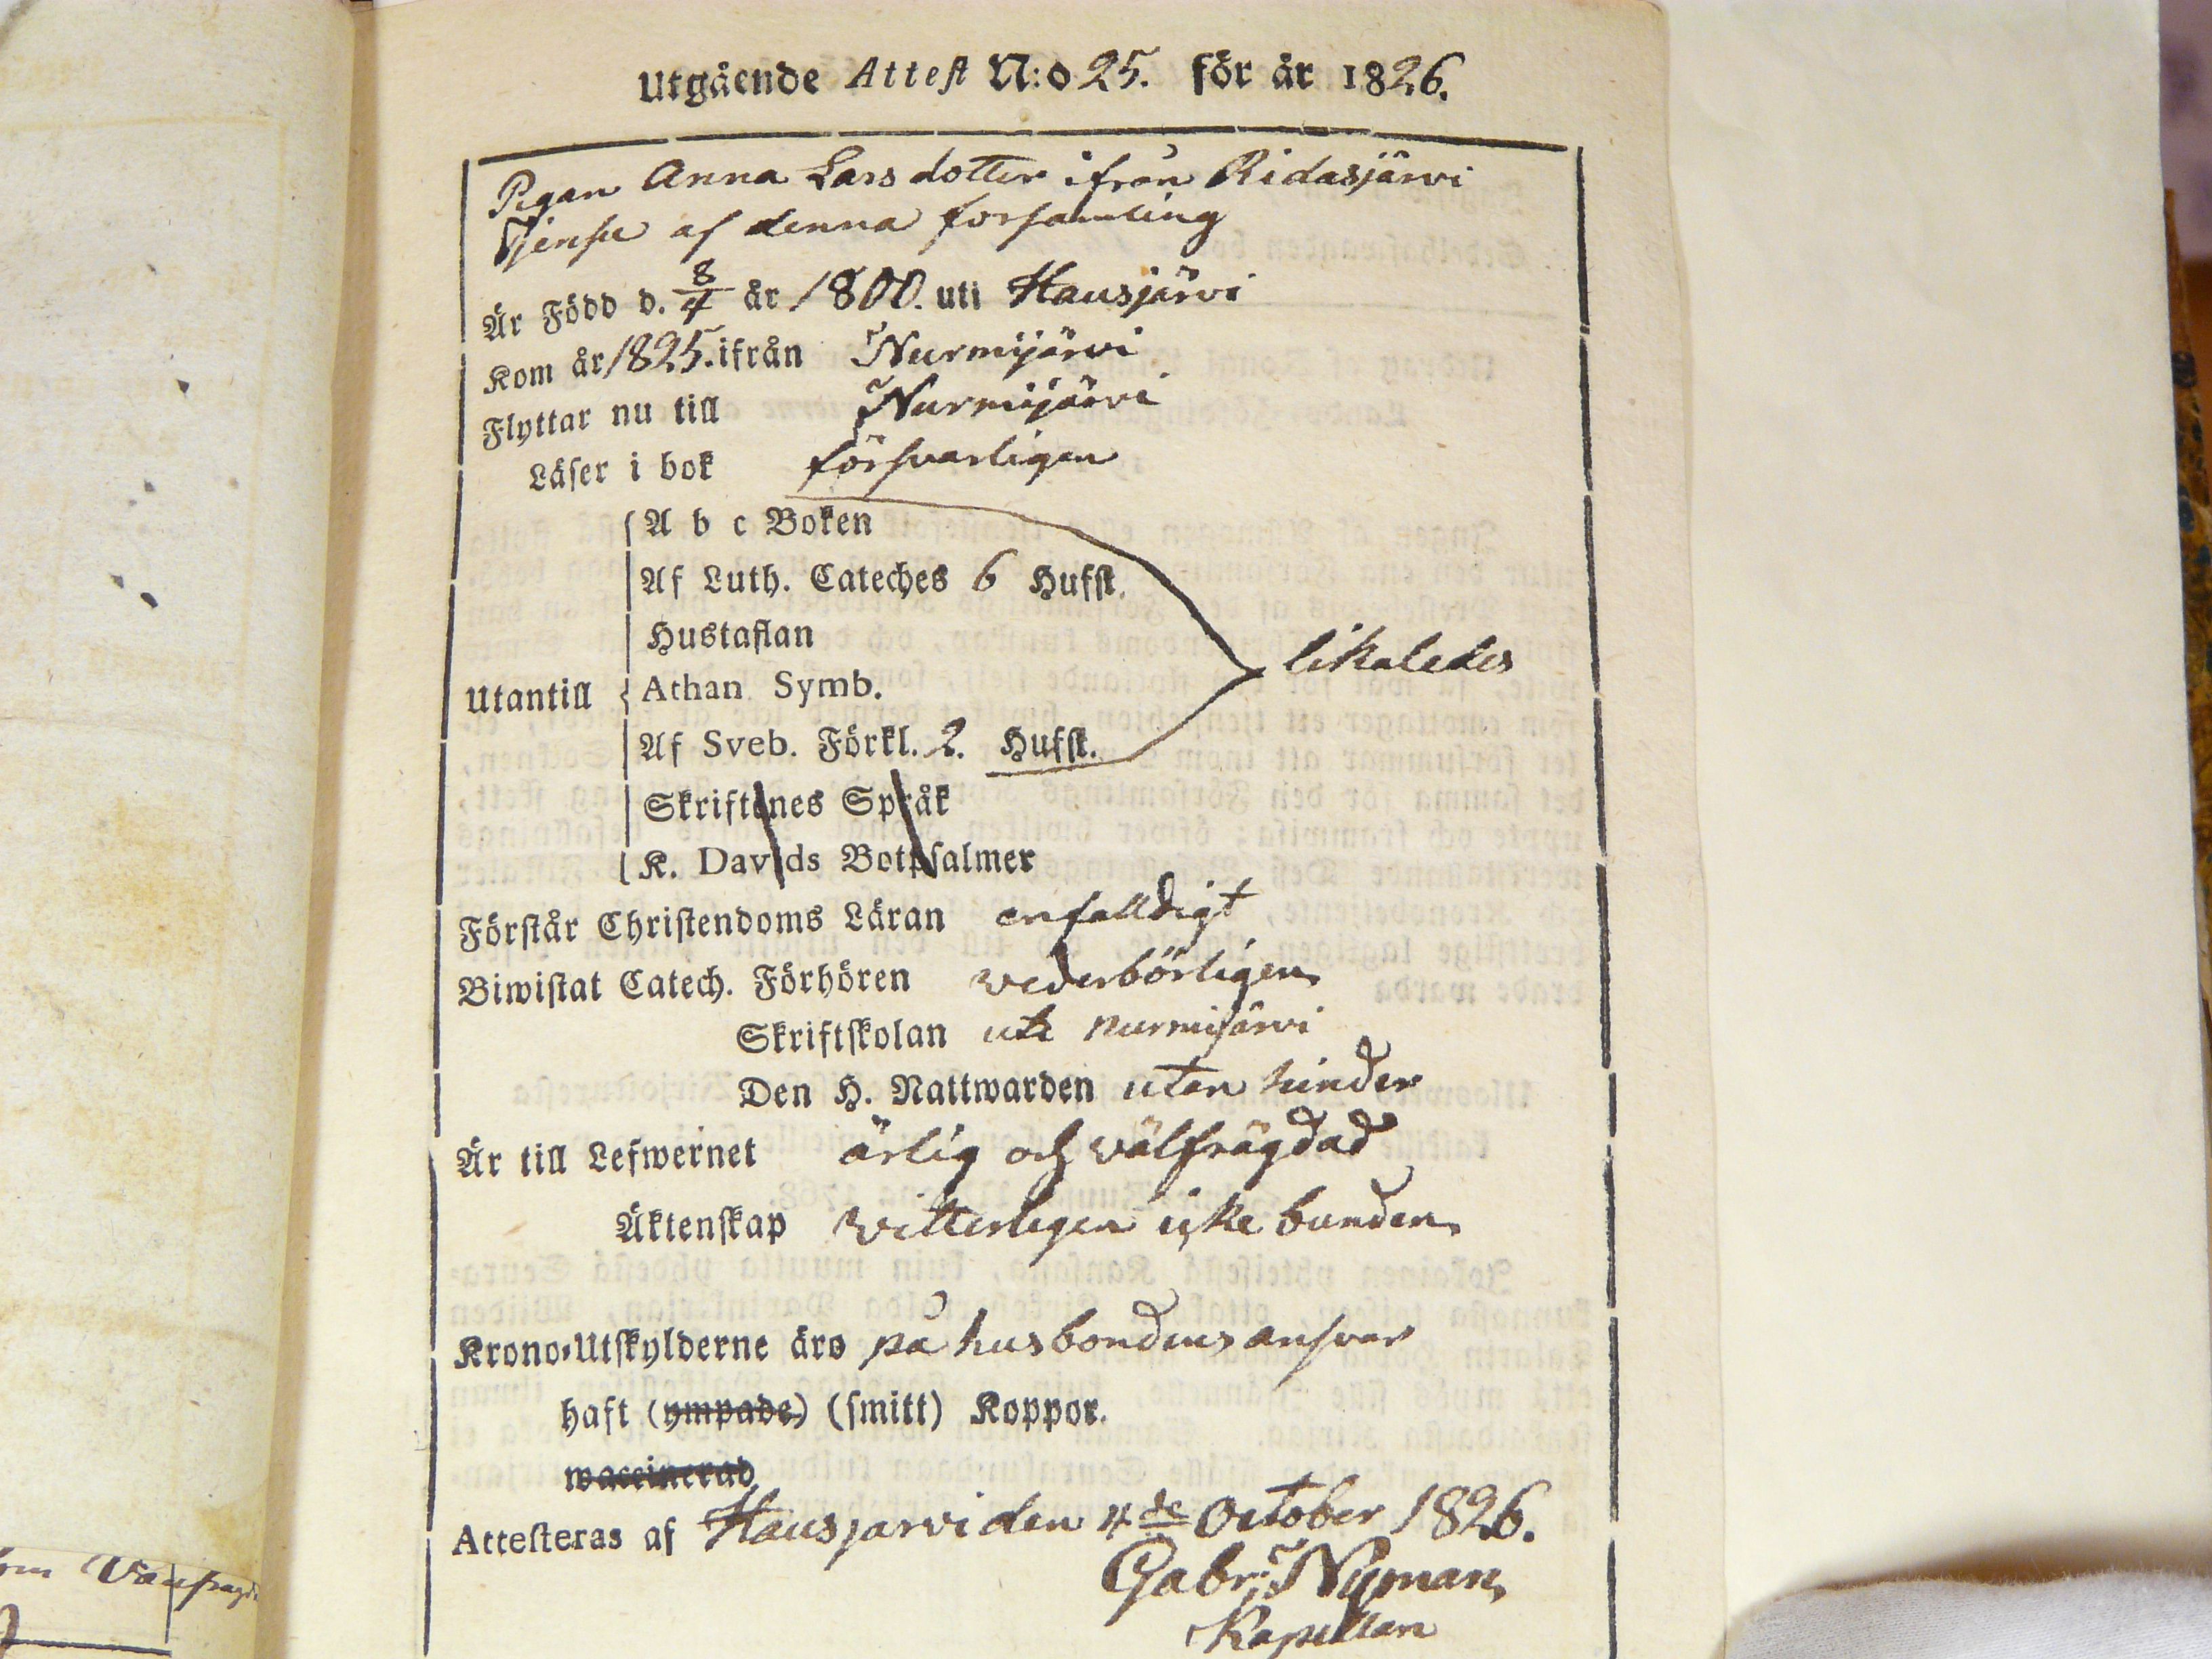 Utgående Attest N:o 25. för år 1826.
Pigan Anna Larsdotter ifrån Ridasjärvi
af denna forsamling
Är Född d. 8/4 år 1800. uti Hausjärvi
Kom år 1825. ifrån Nurmijärvi
Flyttar nu till Nurmijärvi
Läser i bok försvarligen
A b c Boken
Af Luth. Cateches 6 Hufst.
Hustaflan
likaledes
Utantill Athan Symb.
Af Sveb. Förkl. 2. Hufst.
Skriftenes Språk
K. Davids Botpsalmer
Förstår Christendoms Läran enfalldigt
Biwistat Catech. Förhören wederbörligen
Skriftskolan uti Nurmijärvi
Den H. Nattwarden utan hinder
Är till Lefwernet ärlig och välfrägdad
Äktenskap witterligen icke bunden
Krono-Utskylderne äro på husbondens ansvar
haft (ympade) (smitt) Koppor.
waccinerad
Attesteras af Hausjarvi den 4de October 1826.
Gabr: Nyman
Kapellan